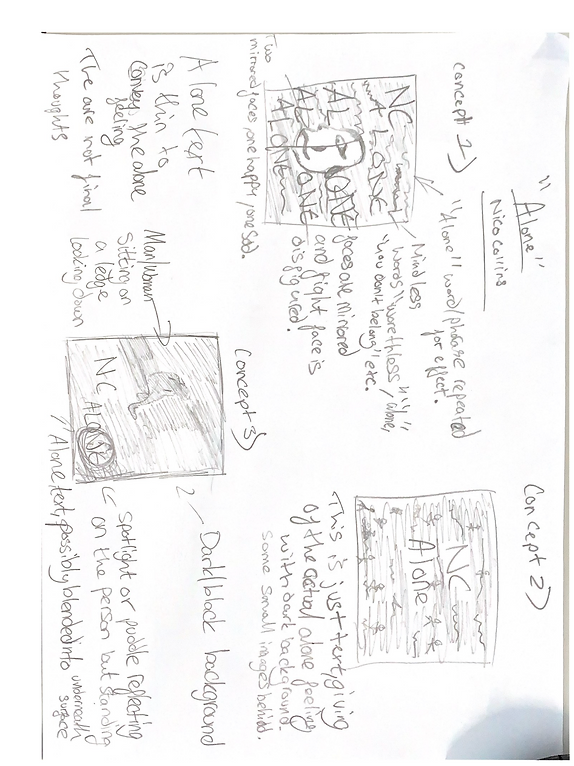 "Alone"
Nico Collins
Concept 1)
"Alone" word/phrase repeated
for effect.
Mindless
words "worethless", "
"You don't belong" etc.
faces are mirrored
and right face is
disfigured.
NC
ALONE
ALONE
ALONE
ALONE
Two
mirrored faces, one happy/one sad.
Alone text
is thin to
convey the alone
feeling
The are not final
thoughts
Concept 2)
NC
Alone
This is just text, giving
of the actual alone feeling
with dark background.
Some small images behind.
Concept 3)
Man/Woman
sitting on
a ledge
looking down
NC
ALONE
Dark/black background
Spotlight or puddle reflecting
on the person but standing
Alone text, possibly blended into underneath
surface